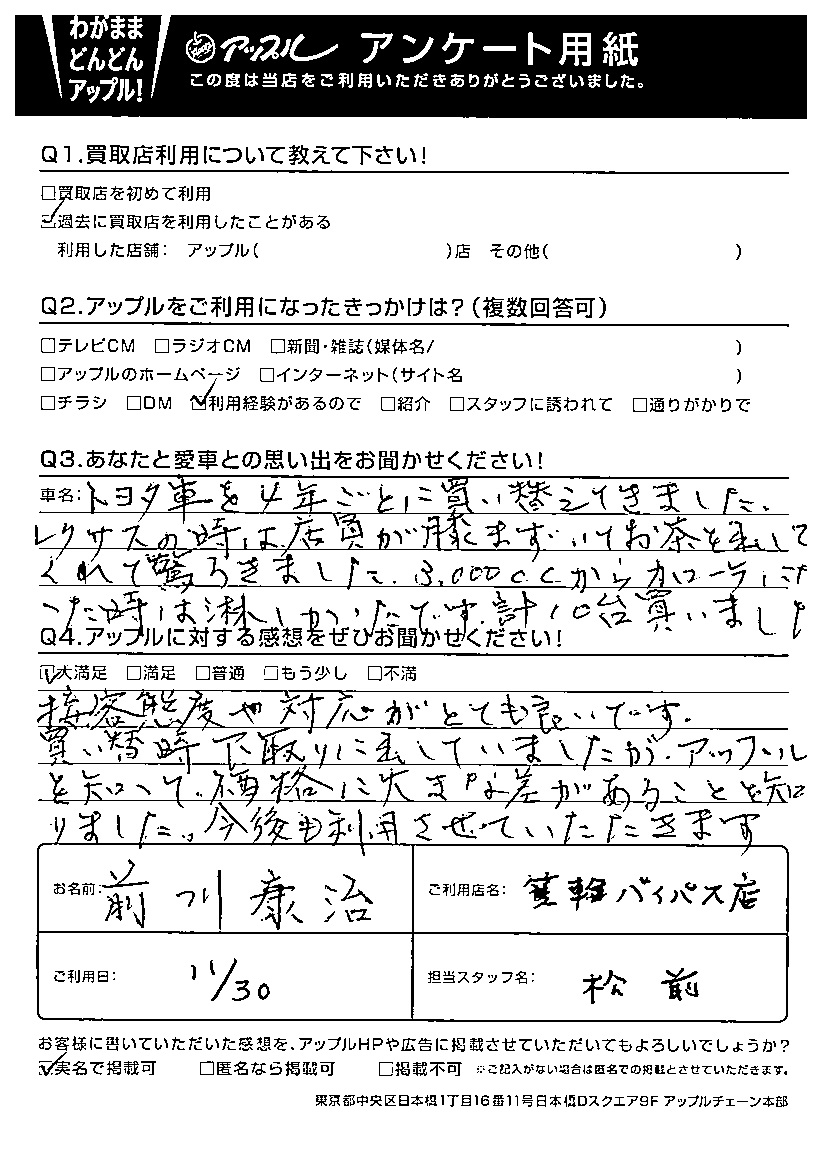 わがまま
どんどん
アップル!
アップル アンケート用紙
この度は当店をご利用いただきありがとうございました。
Q1.買取店利用について教えて下さい!
□買取店を初めて利用
☑過去に買取店を利用したことがある
利用した店舗: アップル( )店 その他( )
Q2.アップルをご利用になったきっかけは?(複数回答可)
□テレビCM □ラジオCM □新聞・雑誌(媒体名/ )
□アップルのホームページ □インターネット(サイト名 )
□チラシ □DM ☑利用経験があるので □紹介 □スタッフに誘われて □通りがかりで
Q3.あなたと愛車との思い出をお聞かせください!
車名:トヨタ車を4年ごとに買い替えてきました。
レクサスの時は店員が膝まずいてお茶を出して
くれて驚ろきました。3,000ccからカローラにな
った時は淋しかったです。計10台買いまし
Q4.アップルに対する感想をぜひお聞かせください!
☑大満足 □満足 □普通 □もう少し □不満
接客態度や対応がとても良いです。
買い替時下取りに出していましたが、アップル
を知って、価格に大きな差があることを知
りました。今後も利用させていただきます
お名前: 前川康治
ご利用店名: 箕輪バイパス店
ご利用日: 11/30
担当スタッフ名: 松前
お客様に書いていただいた感想を、アップルHPや広告に掲載させていただいてもよろしいでしょうか?
☑実名で掲載可 □匿名なら掲載可 □掲載不可 ※ご記入がない場合は匿名での掲載とさせていただきます。
東京都中央区日本橋1丁目16番11号日本橋Dスクエア9F アップルチェーン本部